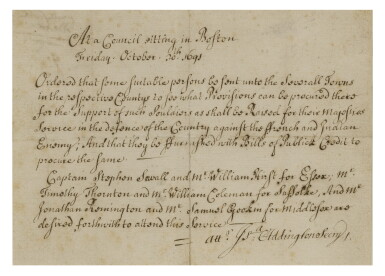 At a Council sitting in Boston
Friday. October. 30th. 1691
Ordered that some suitable persons be sent unto the Severall Towns
in the respective Countys to see what Provisions can be procured there
for the Support of such Souldiers as shall be Raised for their Majesties
Service in the defence of the Country against the ffrench and Indian
Enemy; And that they be ffurnished with Bills of Publick Credit to
procure the same
Captain Stephen Sewall and Mr. William Hirst for Essex; Mr.
Timothy Thornton and Mr. William Coleman for Suffolke, And Mr.
Jonathan Remington and Mr. Samuel Gookin for Middlesex are
desired forthwith to attend this Service
Isa. Addington Secry.